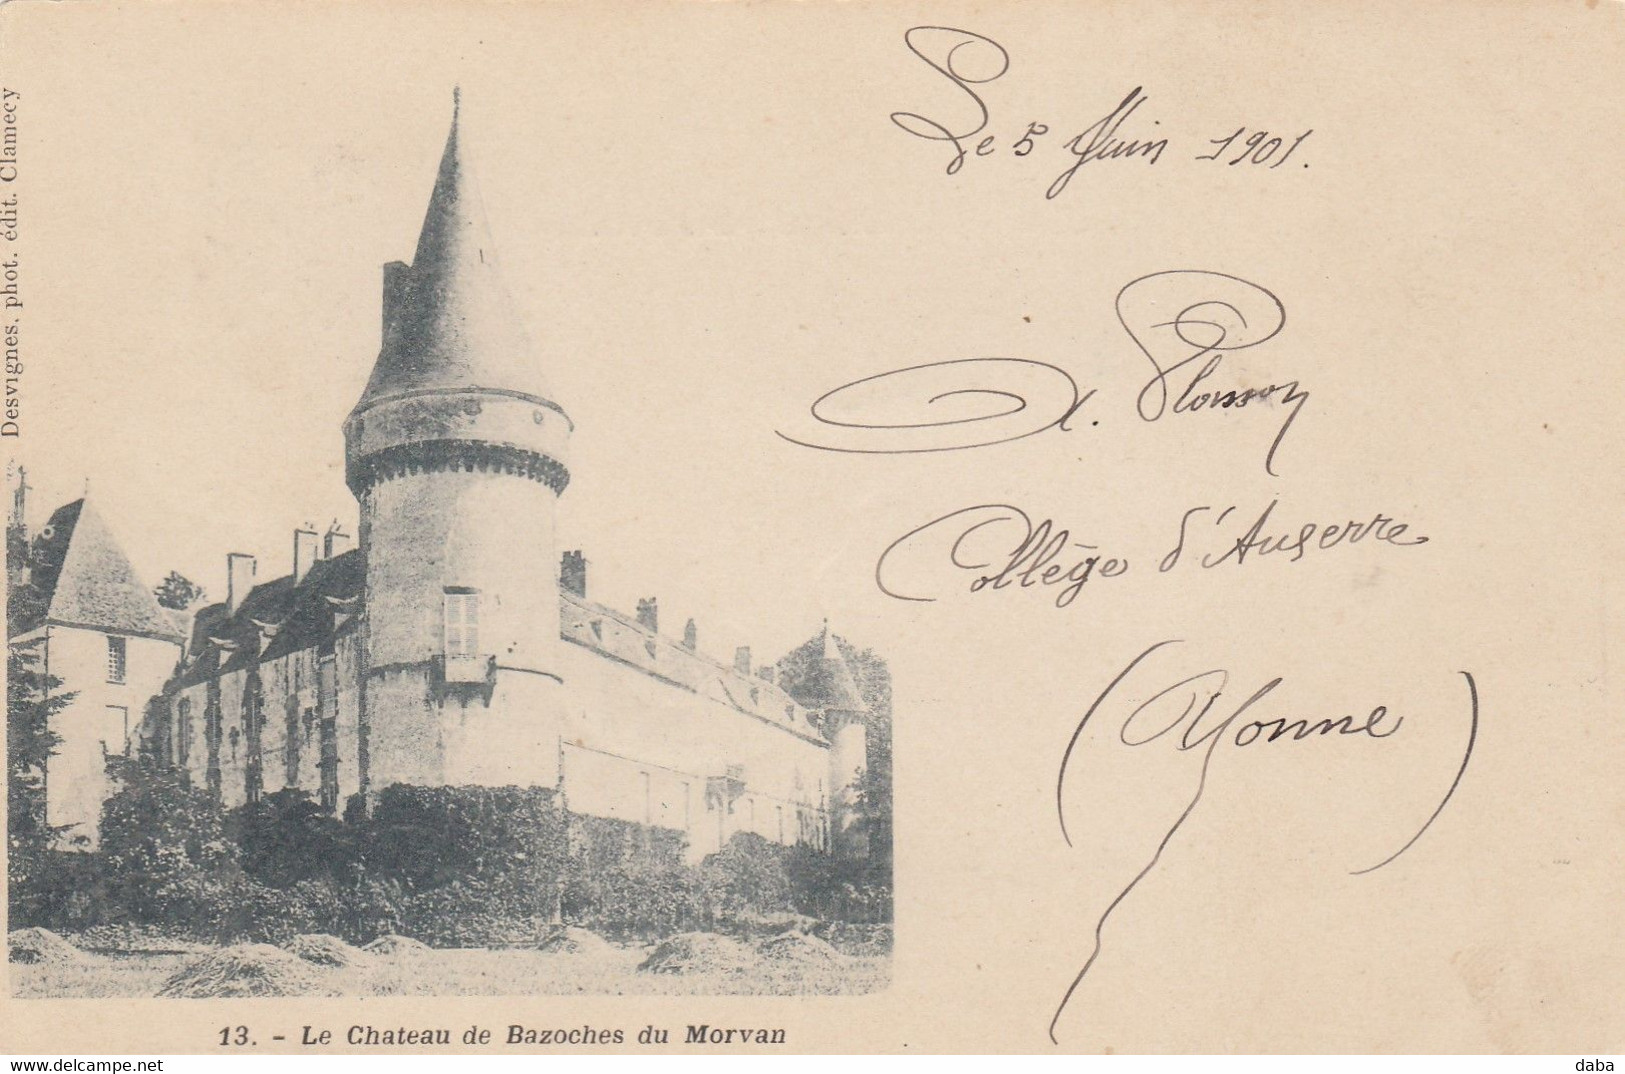 Desvignes, phot. édit. Clamecy
Le 5 Juin 1901.
Collège d'Auxerre
(Yonne)
13. - Le Chateau de Bazoches du Morvan
www.delcampe.net
daba